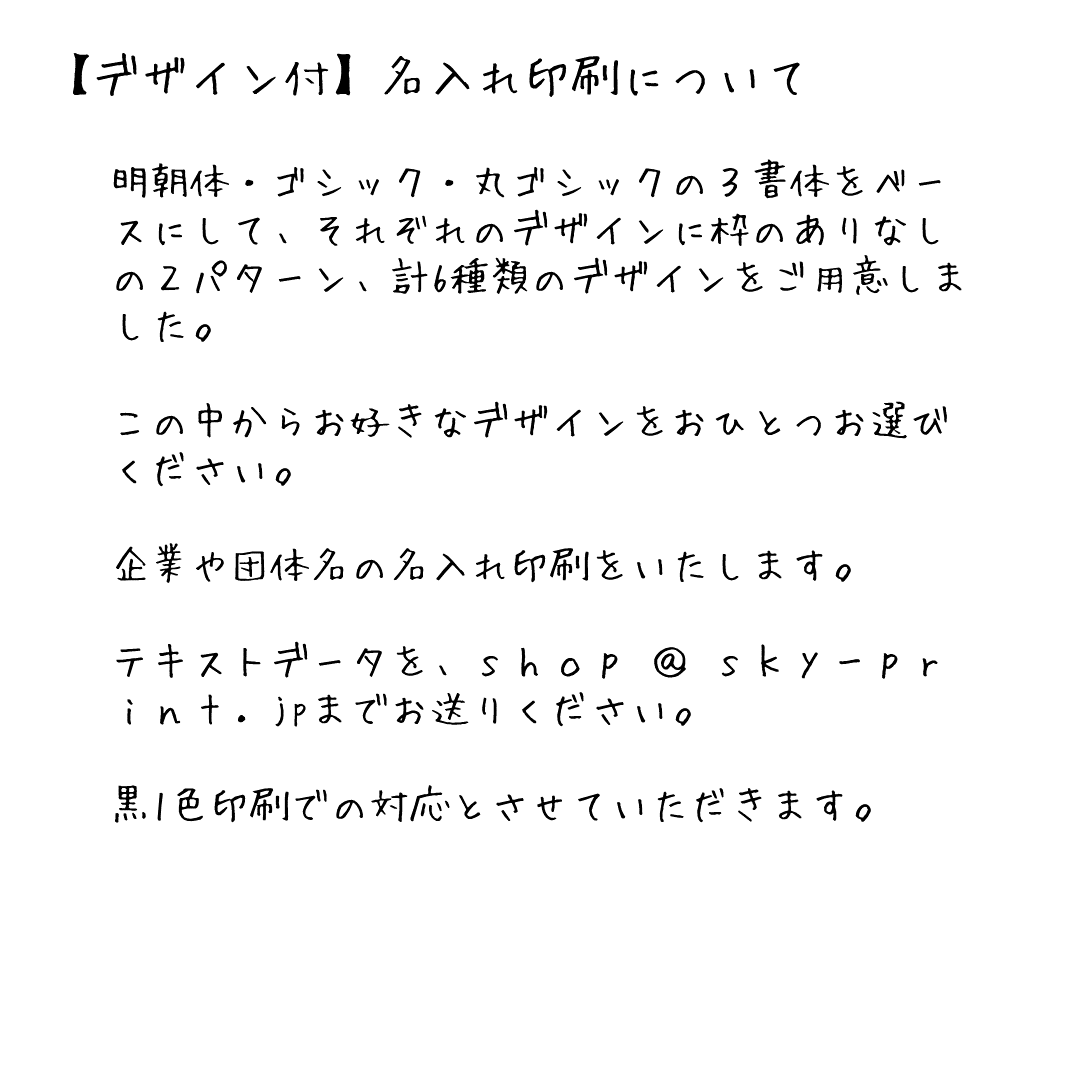 【デザイン付】名入れ印刷について
明朝体・ゴシック・丸ゴシックの3書体をベー
スにして、それぞれのデザインに枠のありなし
の2パターン、計6種類のデザインをご用意しま
した。
この中からお好きなデザインをおひとつお選び
ください。
企業や団体名の名入れ印刷をいたします。
テキストデータを、shop@sky-pr
int.jpまでお送りください。
黒1色印刷での対応とさせていただきます。